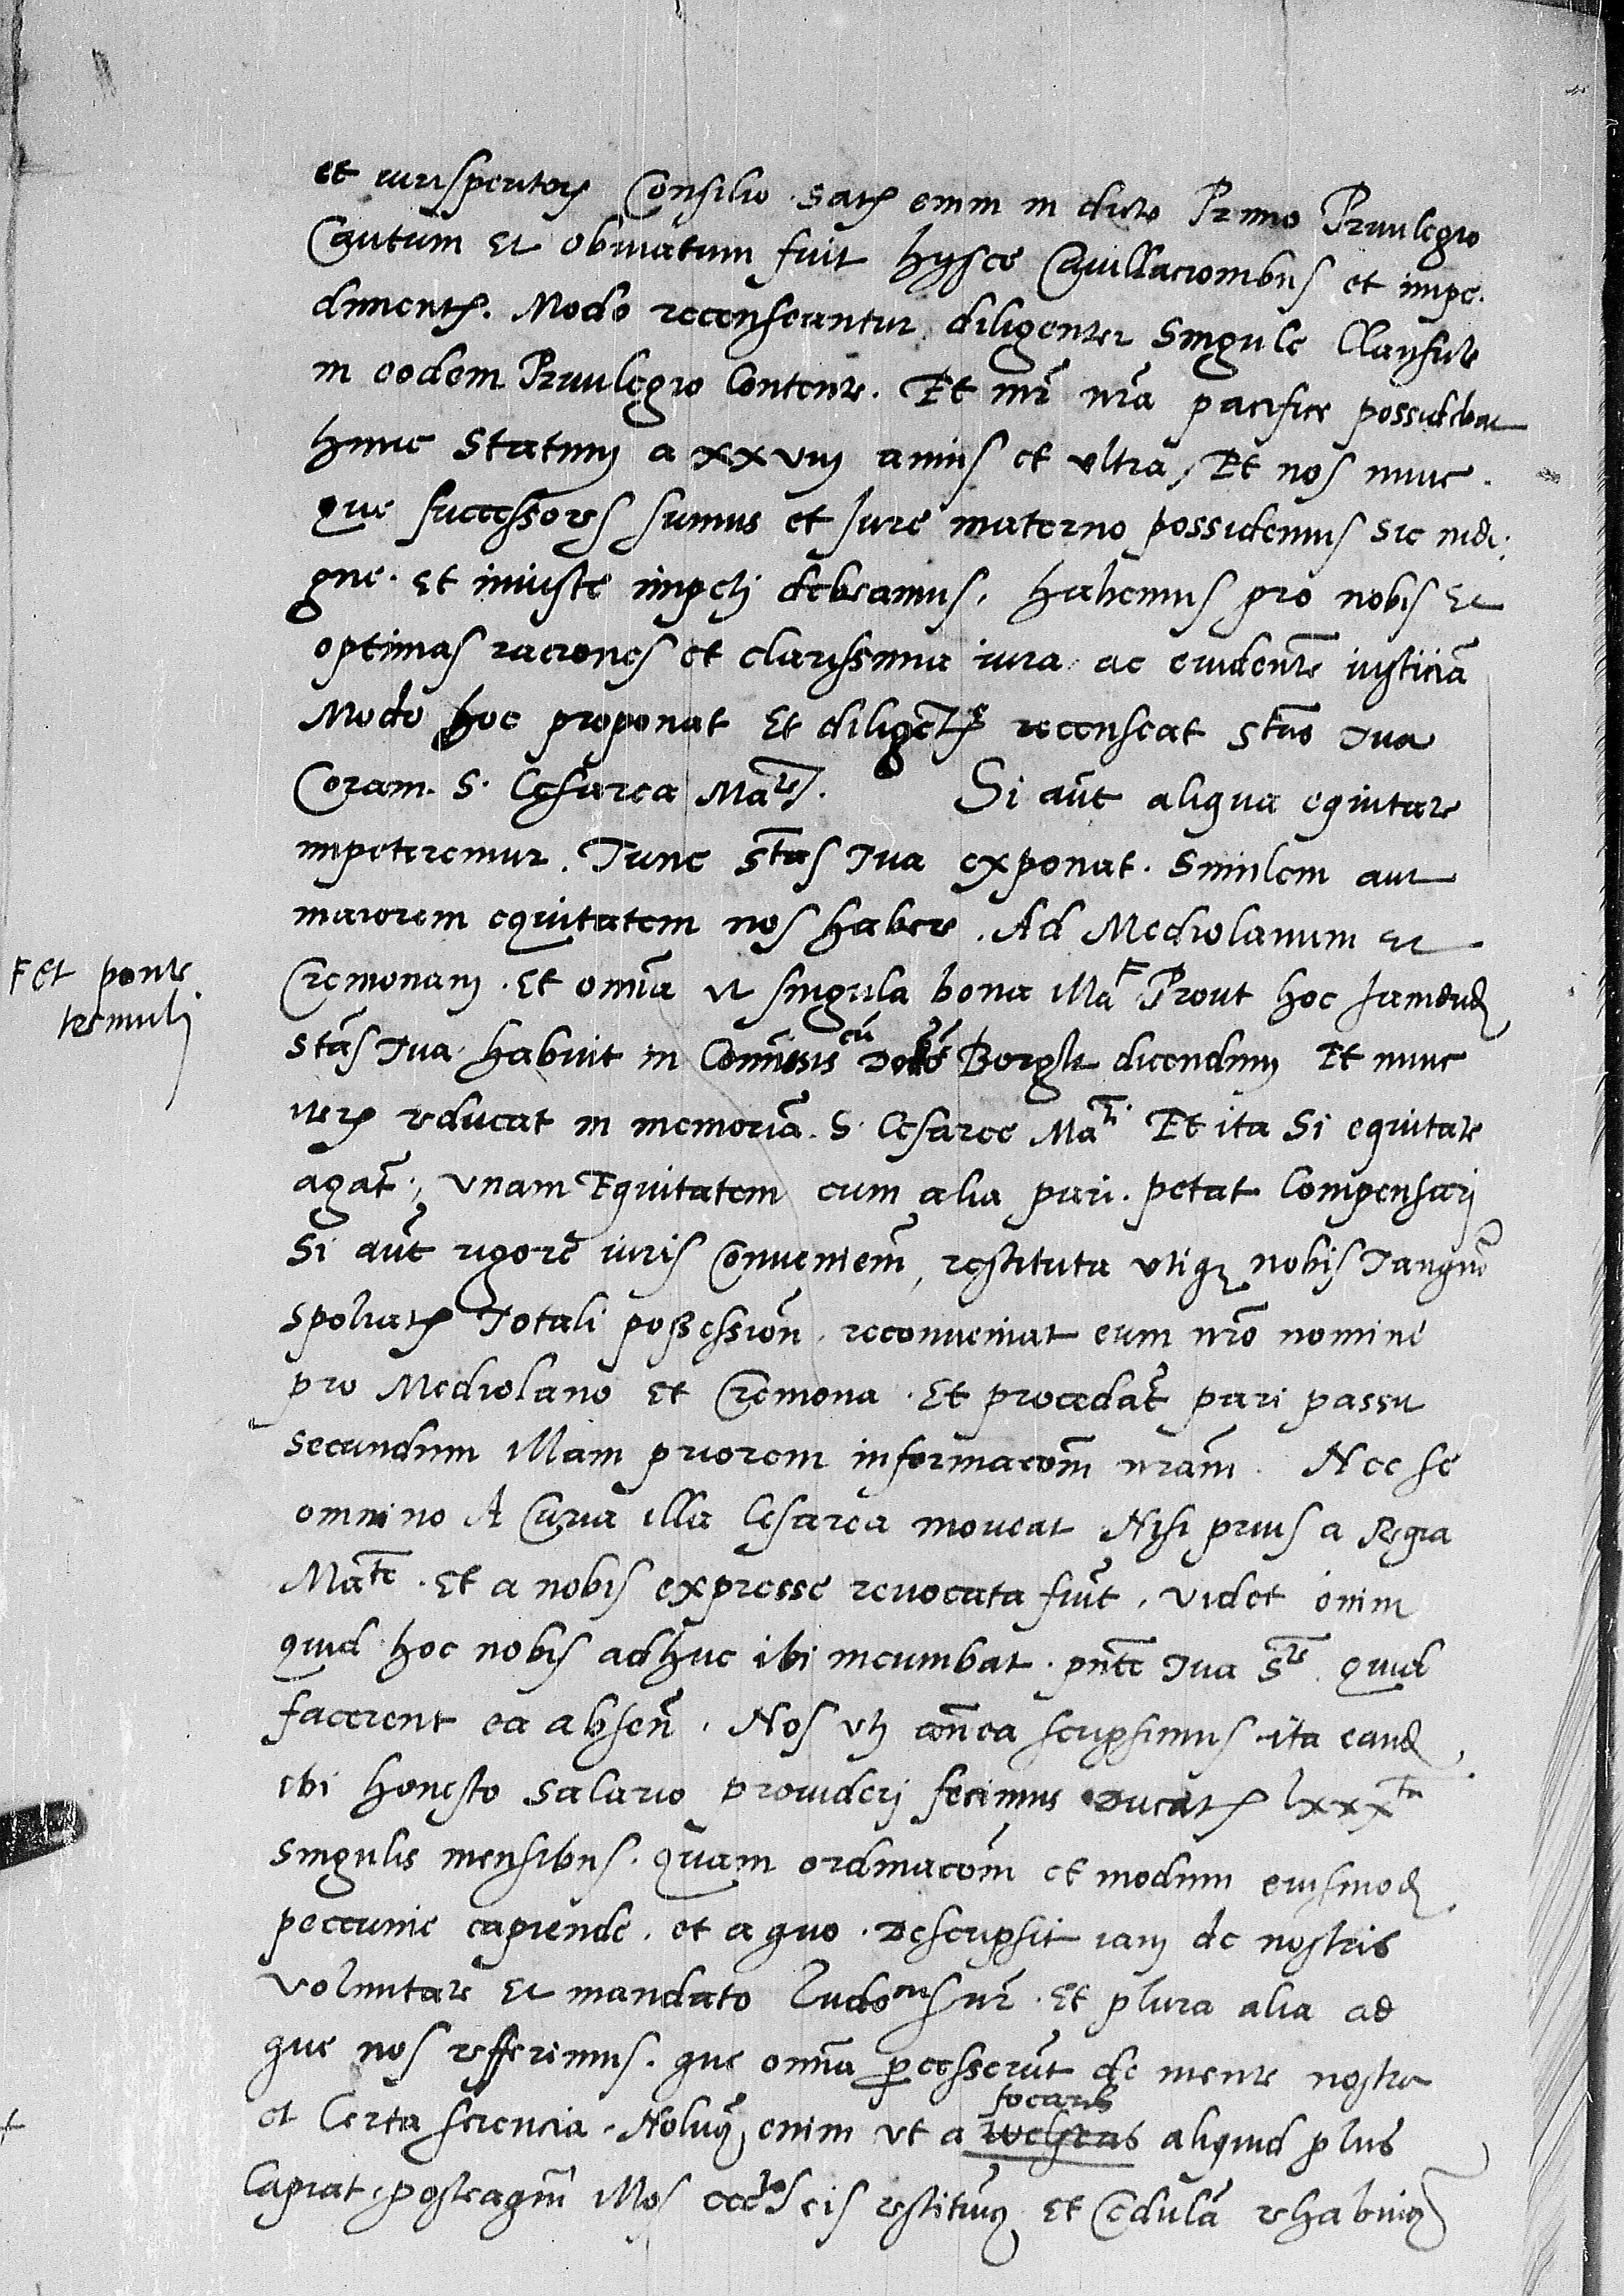 et iurisperitorum Consilio. Satis enim in dicto Primo Priuilegio
Cautum et obuiatum fuit hysce Cauillacionibus et impe-
dimentis. Modo recenseantur diligenter Singule Clausule
in eodem Priuilegio Contente. Et mater nra pacifice possidebat
hunc Statum a xxviij annis et vltra, Et nos nunc
que successores sumus et Iure materno possidemus sic indi-
gne et iniuste impeti debeamus. habemus pro nobis et
optimas raciones et clarissima iura ac euidentem iusticiam
Modo hoc proponat et diligenter recenseat Stas Tua
Coram S. Cesarea Mate. Si aut aliqua equitate
impeteremur. Tunc Stas Tua exponat. Similem aut
maiorem equitatem nos habere. Ad Mediolanum et
et ponte
tremuli
Cremonam. Et omnia et singula bona illa Prout hoc Iamdudum
Stas Tua habuit in Comissis cum Borgh dicendum Et nunc
iterum reducat in memoriam S. Cesaree Matis Et ita Si equitate
agat, vnam Equitatem cum alia pari petat Compensari
Si aut rigore iuris Conueniemur, restituta vtique nobis Tanquam
Spoliatis Totali possessione reconueniat eum nro nomine
pro Mediolano et Cremona. Et procedat pari passu
secundum illam priorem informacionem nram. Nec se
omnino A Curia illa Cesarea moueat Nisi prius a Regia
Mate. Et a nobis expresse reuocata fuerit. Videt enim
quid hoc nobis adhuc ibi incumbat. pnte Tua Ste. quid
facerent ea absente. Nos vti antea scripsimus ita eandem
ibi honesto Salario prouideri fecimus Ducatis lxxxta
Singulis mensibus. quam ordinacionem et modum eiusmodi
peccunie capiende. et a quo. Descripsit iam de nostris
Voluntate et mandato Ludouicus nr. Et plura alia ad
que nos refferimus. que omnia processerunt de mente nostra
et Certa sciencia. Nolumus enim vt a focaris aliquid plus
Capiat, posteaquam illos ccctos eis restituimus et Cedulam rehabuimus